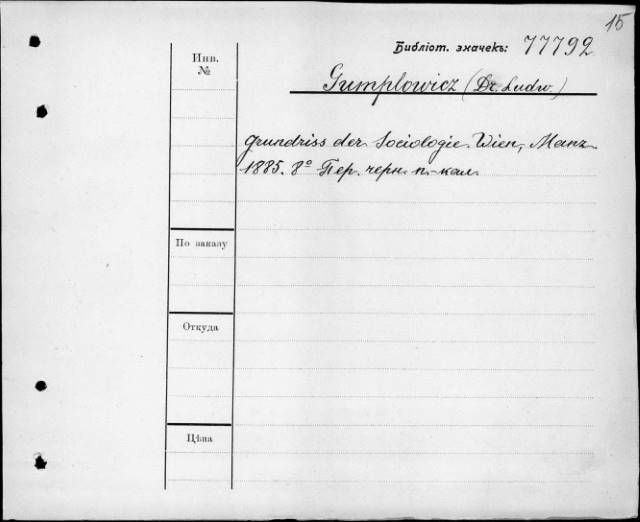 15
Библіот. значекъ: 77792
Инв.
№
Gumplowicz (Dr. Ludw.)
Grundriss der Sociologie. Wien, Manz
1885. 8° Пер. черн. п.-кал.
По заказу
Откуда
Цѣна